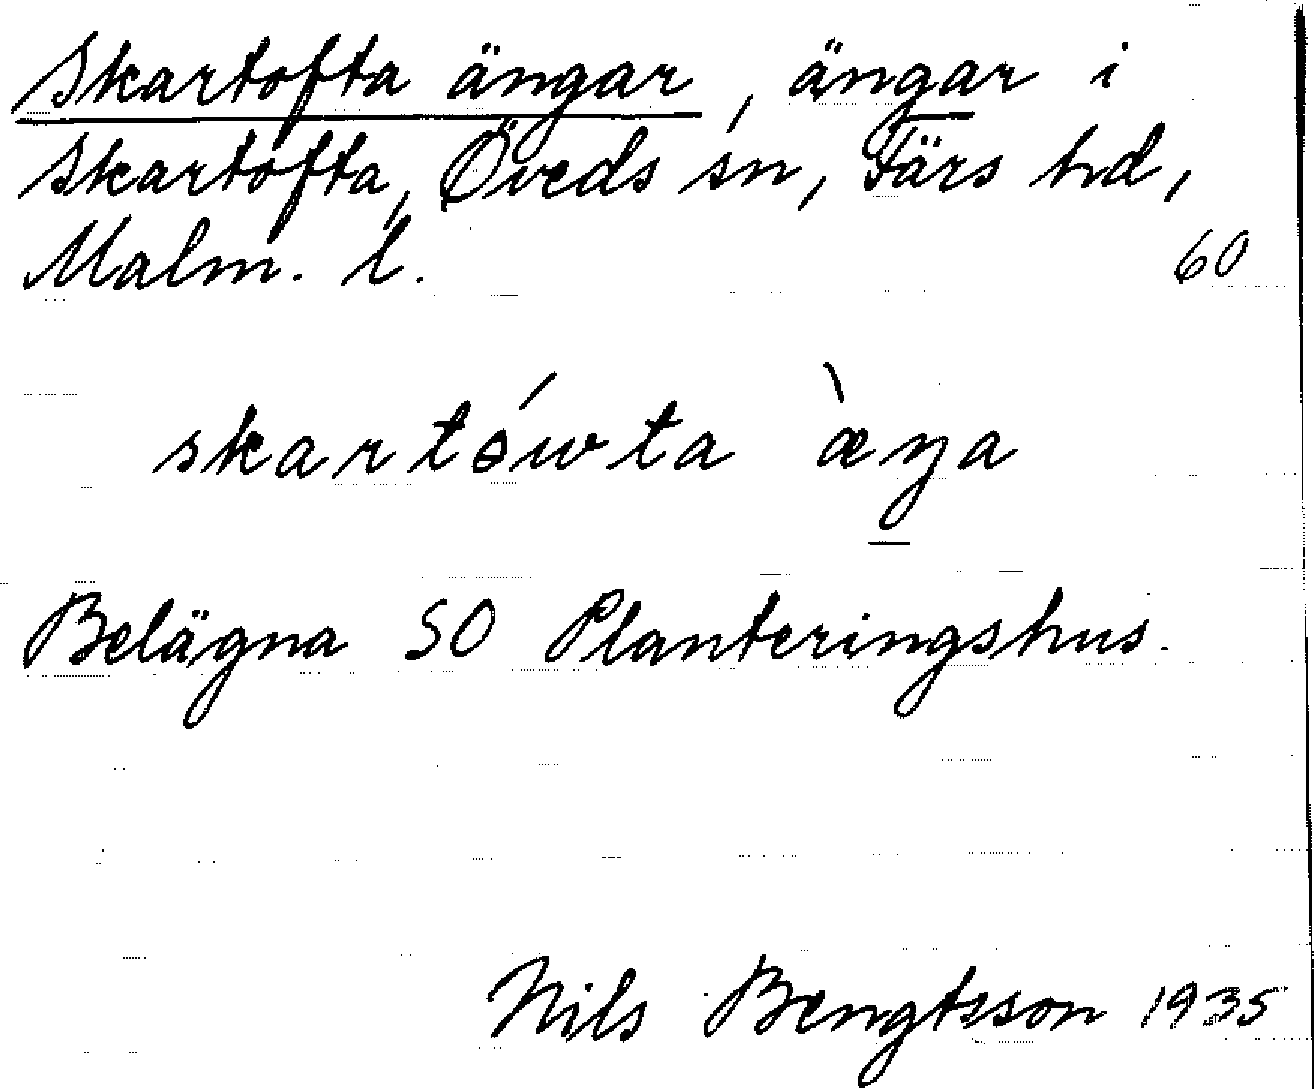 Skartofta ängar, ängar i
Skartofta, Öveds sn, Färs hd,
Malm. l. 60
skartówta æ̀ŋa
Belägna SO Planteringshus.
Nils Bengtsson 1935